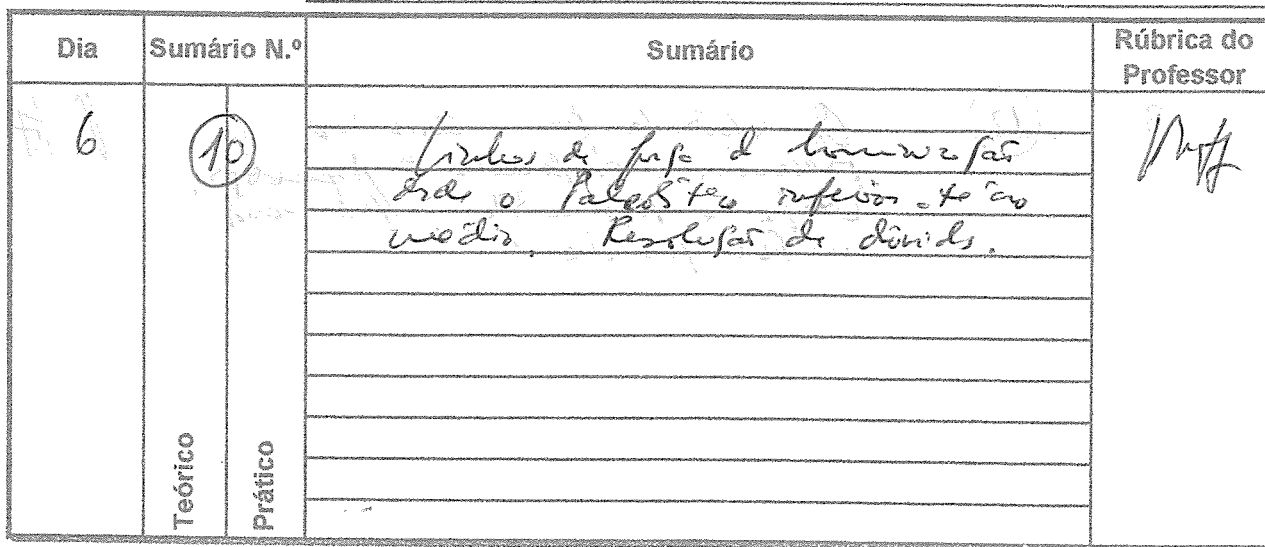 Dia Sumário N.º Sumário Rúbrica do Professor
6 10 Linhas de força da hominização
desde o Paleolítico inferior até ao
médio. Resolução de dúvidas.
Teórico
Prático